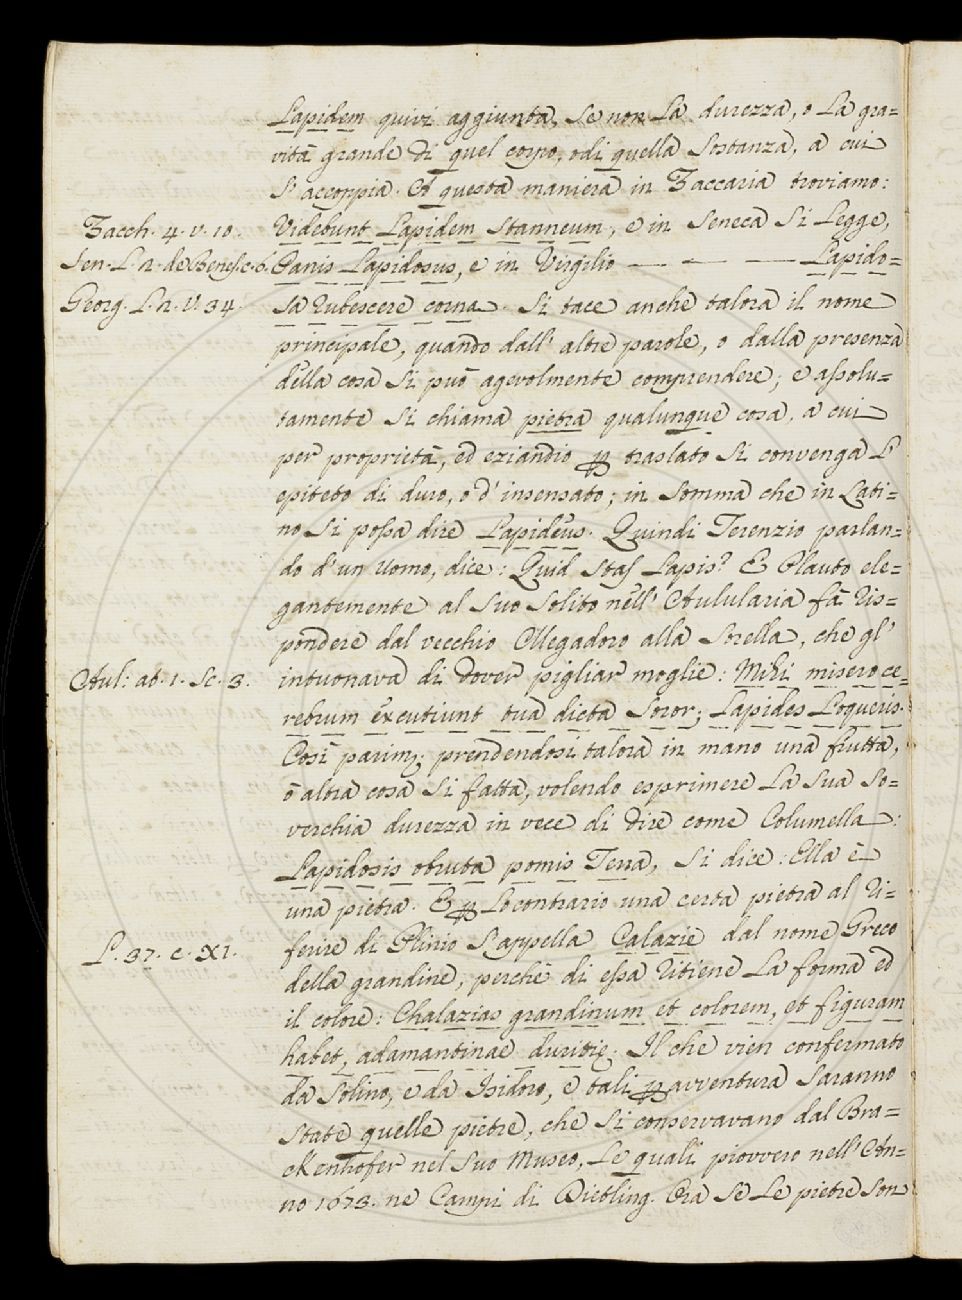 Lapidem quivi aggiunta, se non la durezza, o la gra=
vità grande di quel corpo, o di quella Sostanza, a cui
s'accoppia. A questa maniera in Zaccaria troviamo:
Zacch. 4. v. 10. Videbunt Lapidem stanneum, e in Seneca si legge,
Sen. L. 2. de Benef. c. 6. Panis Lapidosus, e in Virgilio — — — Lapido=
Georg. L. 2. V. 34. sa rubescere corna. Si tace anche talora il nome
principale, quando dall' altre parole, o dalla presenza
della cosa si può agevolmente comprendere; e assolu=
tamente si chiama pietra qualunque cosa, a cui
per proprietà, ed eziandio p traslato si convenga l'
epiteto di duro, o d' insensato; in somma che in Lati=
no si possa dire Lapideus. Quindi Terenzio parlan=
do d' un Uomo, dice: Quid stas Lapis? E Plauto ele=
gantemente al suo solito nell' Aulularia fà ris=
pondere dal vecchio Megadoro alla Sorella, che gl'
Aul: at. 1. Sc. 3. intuonava di dover pigliar moglie: Mihi misero ce=
rebrum excutiunt tua dicta Soror; Lapides Loqueris.
Così parim; prendendosi talora in mano una frutta,
ò altra cosa si fatta, volendo esprimere la sua so=
verchia durezza in vece di dire come Columella:
Lapidosis obruta pomis Terra, si dice: Ella è
una pietra. E p lo contrario una certa pietra al ri=
L. 37. c. XI. ferire di Plinio s'appella Calazie dal nome Greco
della grandine, perchè di essa ritiene la forma ed
il colore: Chalazias grandinum et colorem, et figuram
habet, adamantinae duritię. Il che vien confermato
da Solino, e da Isidoro, e tali p avventura saranno
state quelle pietre, che si conservavano dal Bra=
ckenhofer nel suo Museo, le quali piovvero nell' An=
no 1673. ne Campi di Dietling. Ora se le pietre son